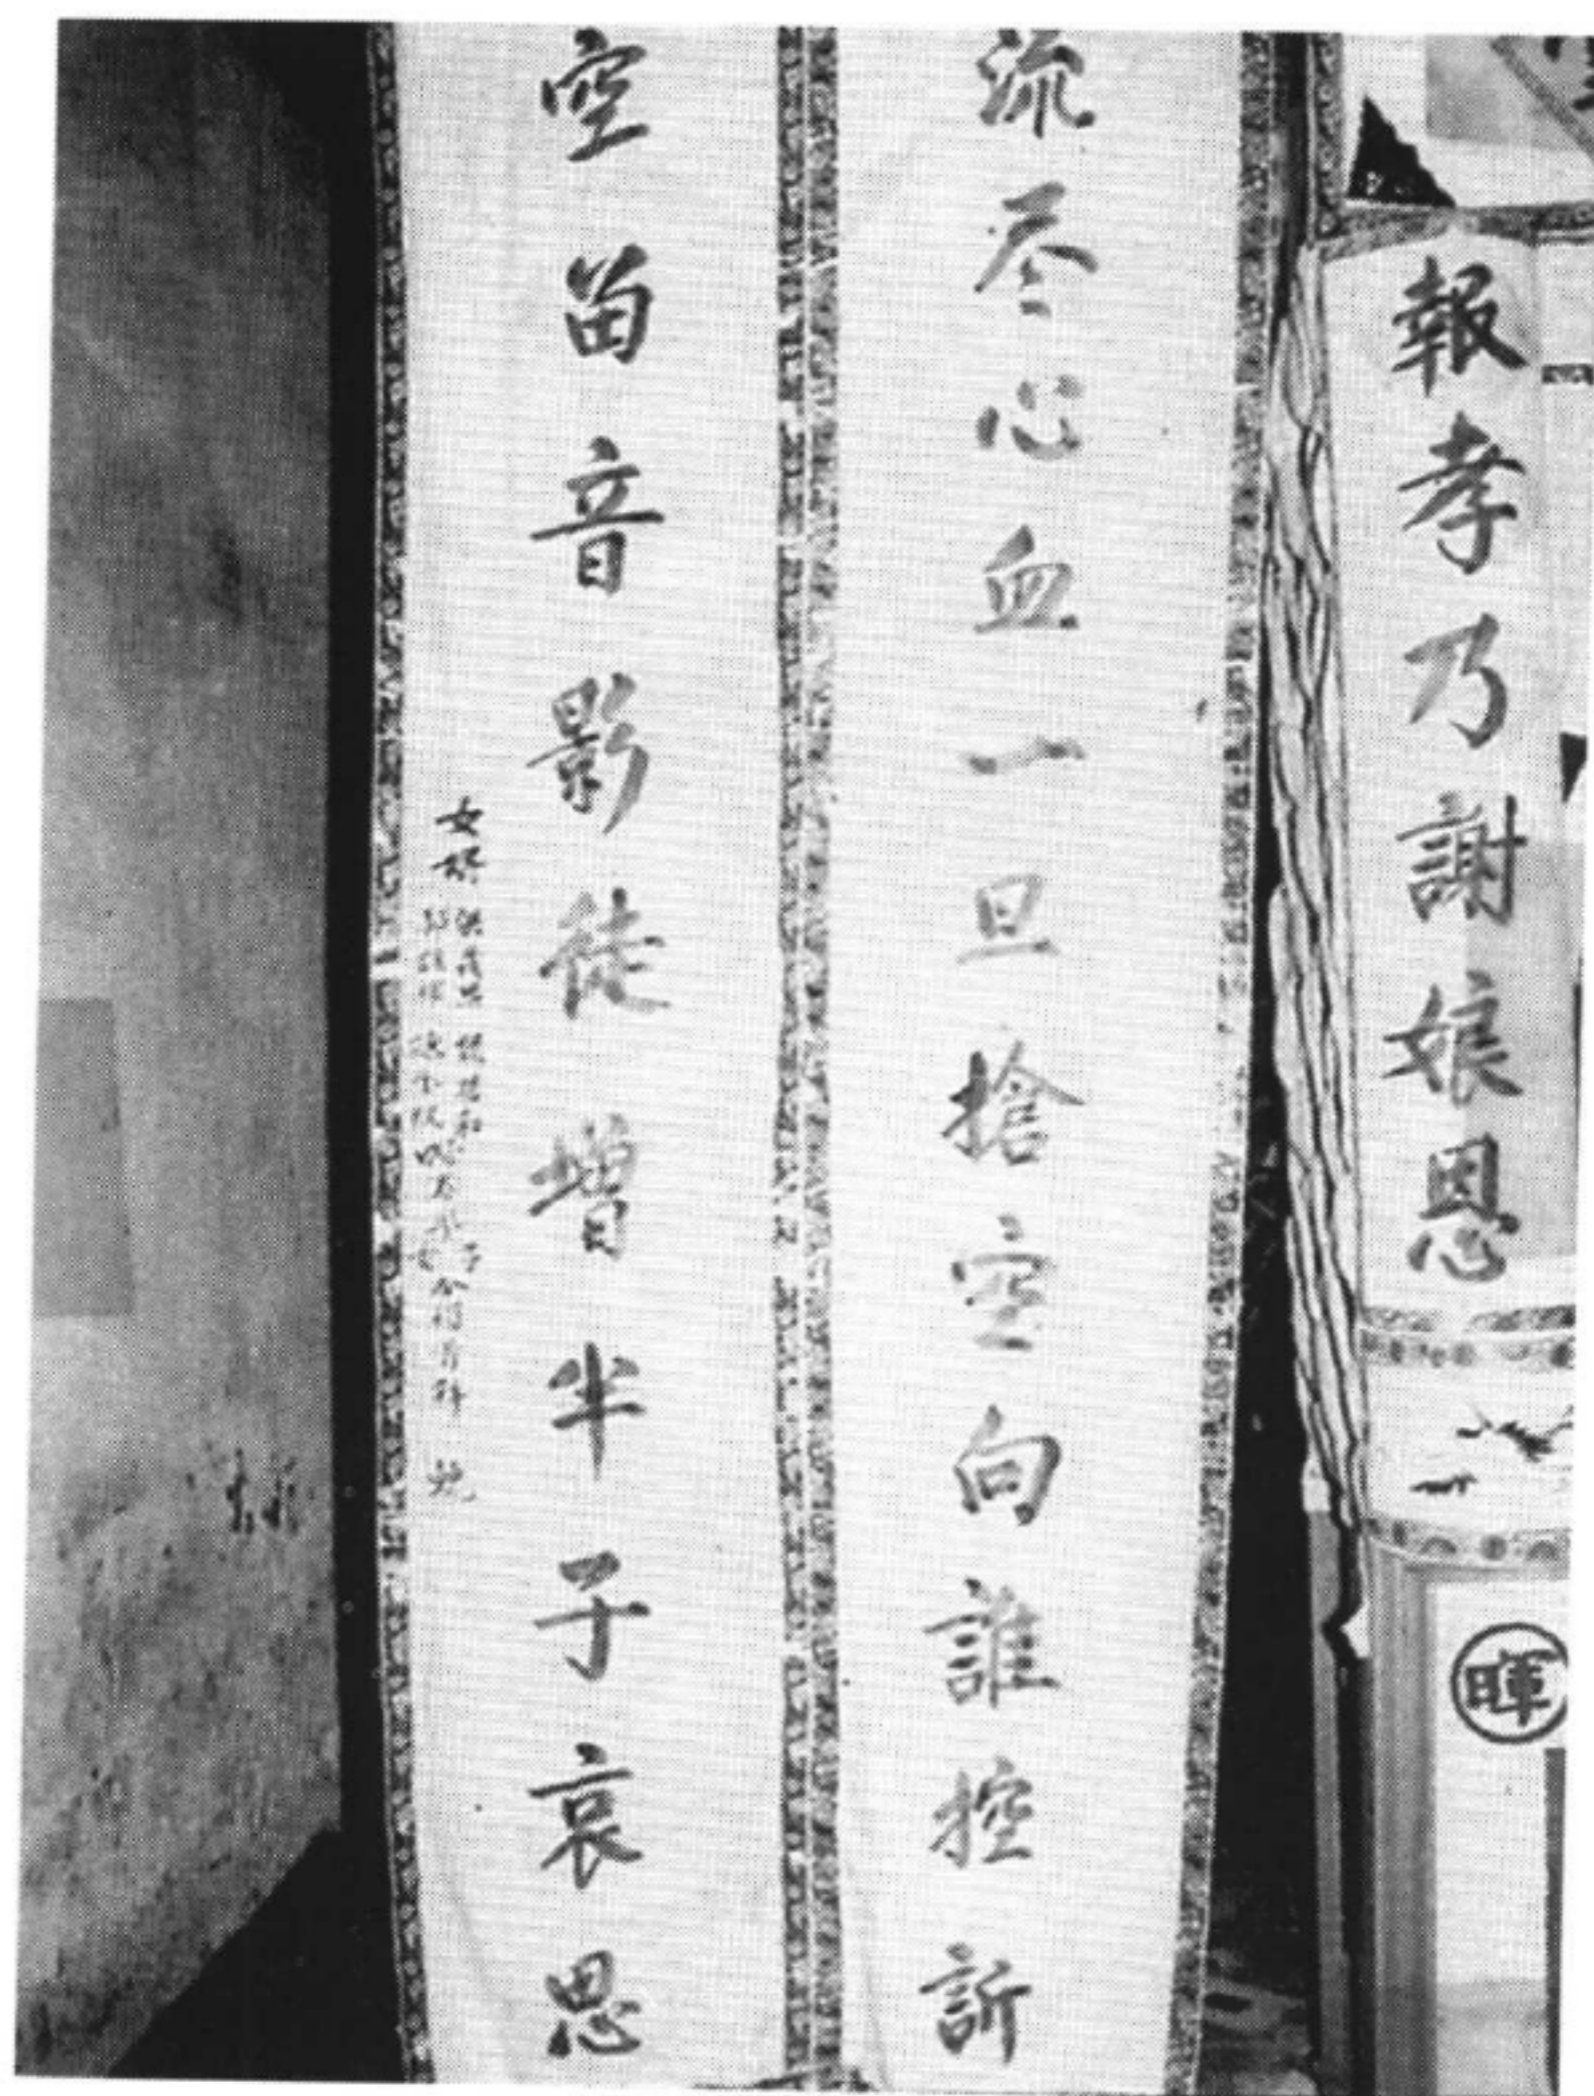 報孝乃謝娘恩
暉
流尽心血一旦搶空向誰控訴
空留音影徒增半子哀思
女婿